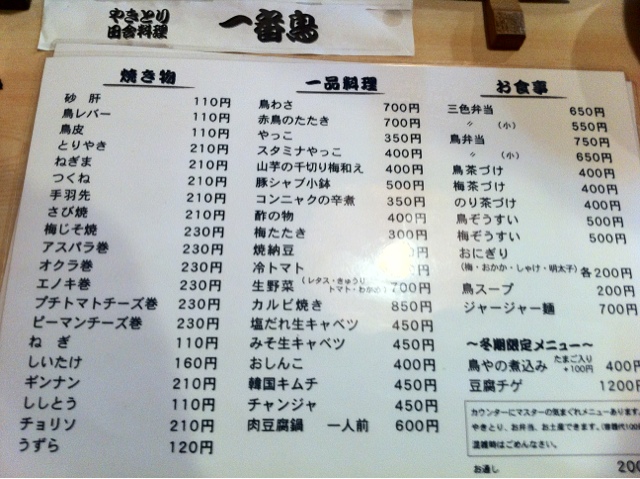 やきとり
田舎料理
一番鳥
焼き物
砂肝 110円
鳥レバー 110円
鳥皮 110円
とりやき 210円
ねぎま 210円
つくね 210円
手羽先 210円
さび焼 210円
梅じそ焼 230円
アスパラ巻 230円
オクラ巻 230円
エノキ巻 230円
プチトマトチーズ巻 230円
ピーマンチーズ巻 230円
ねぎ 110円
しいたけ 160円
ギンナン 210円
ししとう 110円
チョリソ 210円
うずら 120円
一品料理
鳥わさ 700円
赤鳥のたたき 700円
やっこ 350円
スタミナやっこ 400円
山芋の千切り梅和え 400円
豚シャブ小鉢 500円
コンニャクの辛煮 350円
酢の物 400円
梅たたき 300円
焼納豆
冷トマト 円
生野菜(レタス・きゅうり トマト・わかめ) 700円
カルビ焼き 850円
塩だれ生キャベツ 450円
みそ生キャベツ 450円
おしんこ 400円
韓国キムチ 450円
チャンジャ 450円
肉豆腐鍋 一人前 600円
お食事
三色弁当 650円
〃 (小) 550円
鳥弁当 750円
〃 (小) 650円
鳥茶づけ 400円
梅茶づけ 400円
のり茶づけ 400円
鳥ぞうすい 500円
梅ぞうすい 500円
おにぎり
(梅・おかか・しゃけ・明太子) 各200円
鳥スープ 200円
ジャージャー麺 700円
～冬期限定メニュー～
鳥やの煮込み たまご入り +100円 400円
豆腐チゲ 1200円
カウンターにマスターの気まぐれメニューあります。
やきとり、お弁当、お土産できます。(容器代100
混雑時はごめんなさい。
お通し 200